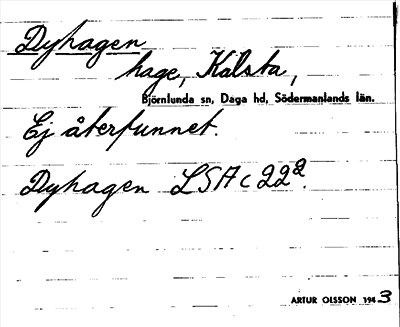 Dyhagen
hage, Kalsta,
Björnlunda sn, Daga hd, Södermanlands län.
Ej återfunnet.
Dyhagen LSA C 22².
ARTUR OLSSON 1943